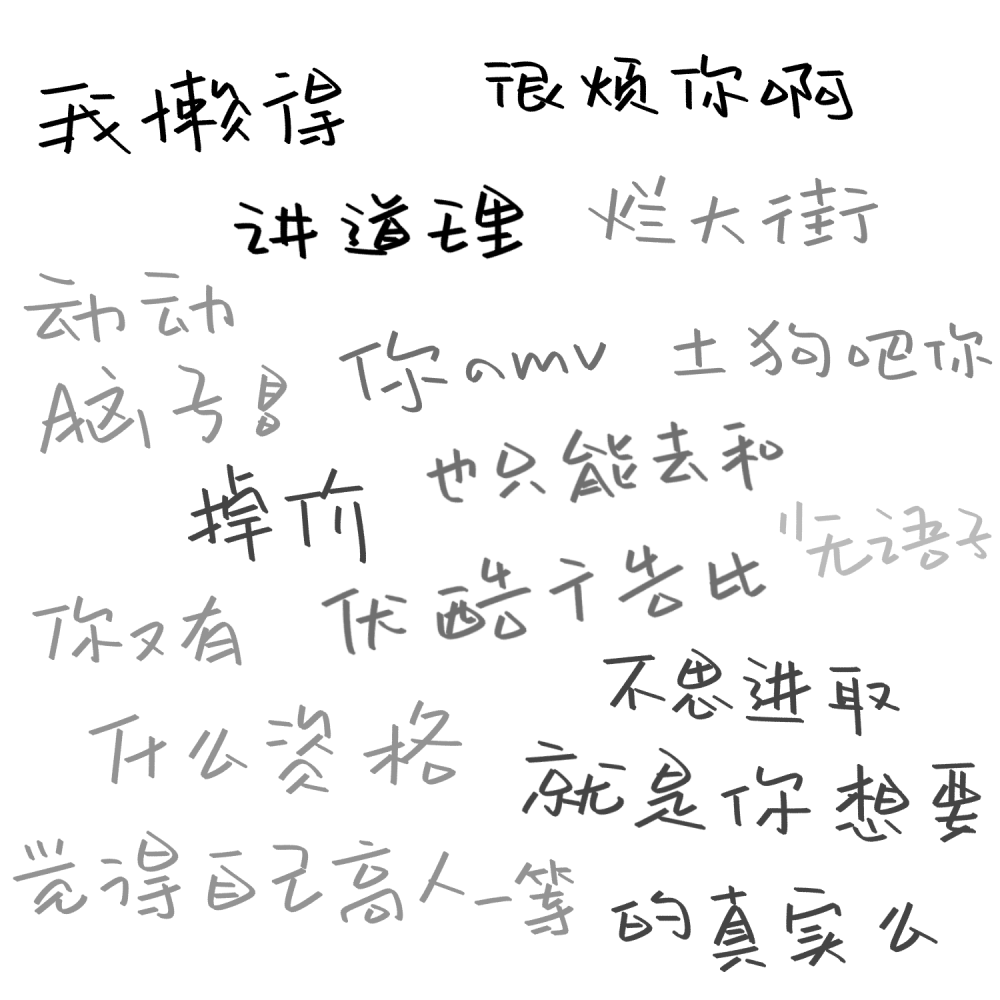 我懒得
很烦你啊
讲道理
烂大街
动动
脑子!
你amv
土狗吧你
掉价
也只能去和
优酷广告比
"无语子
你又有
什么资格
觉得自己高人一等
不思进取
就是你想要
的真实么